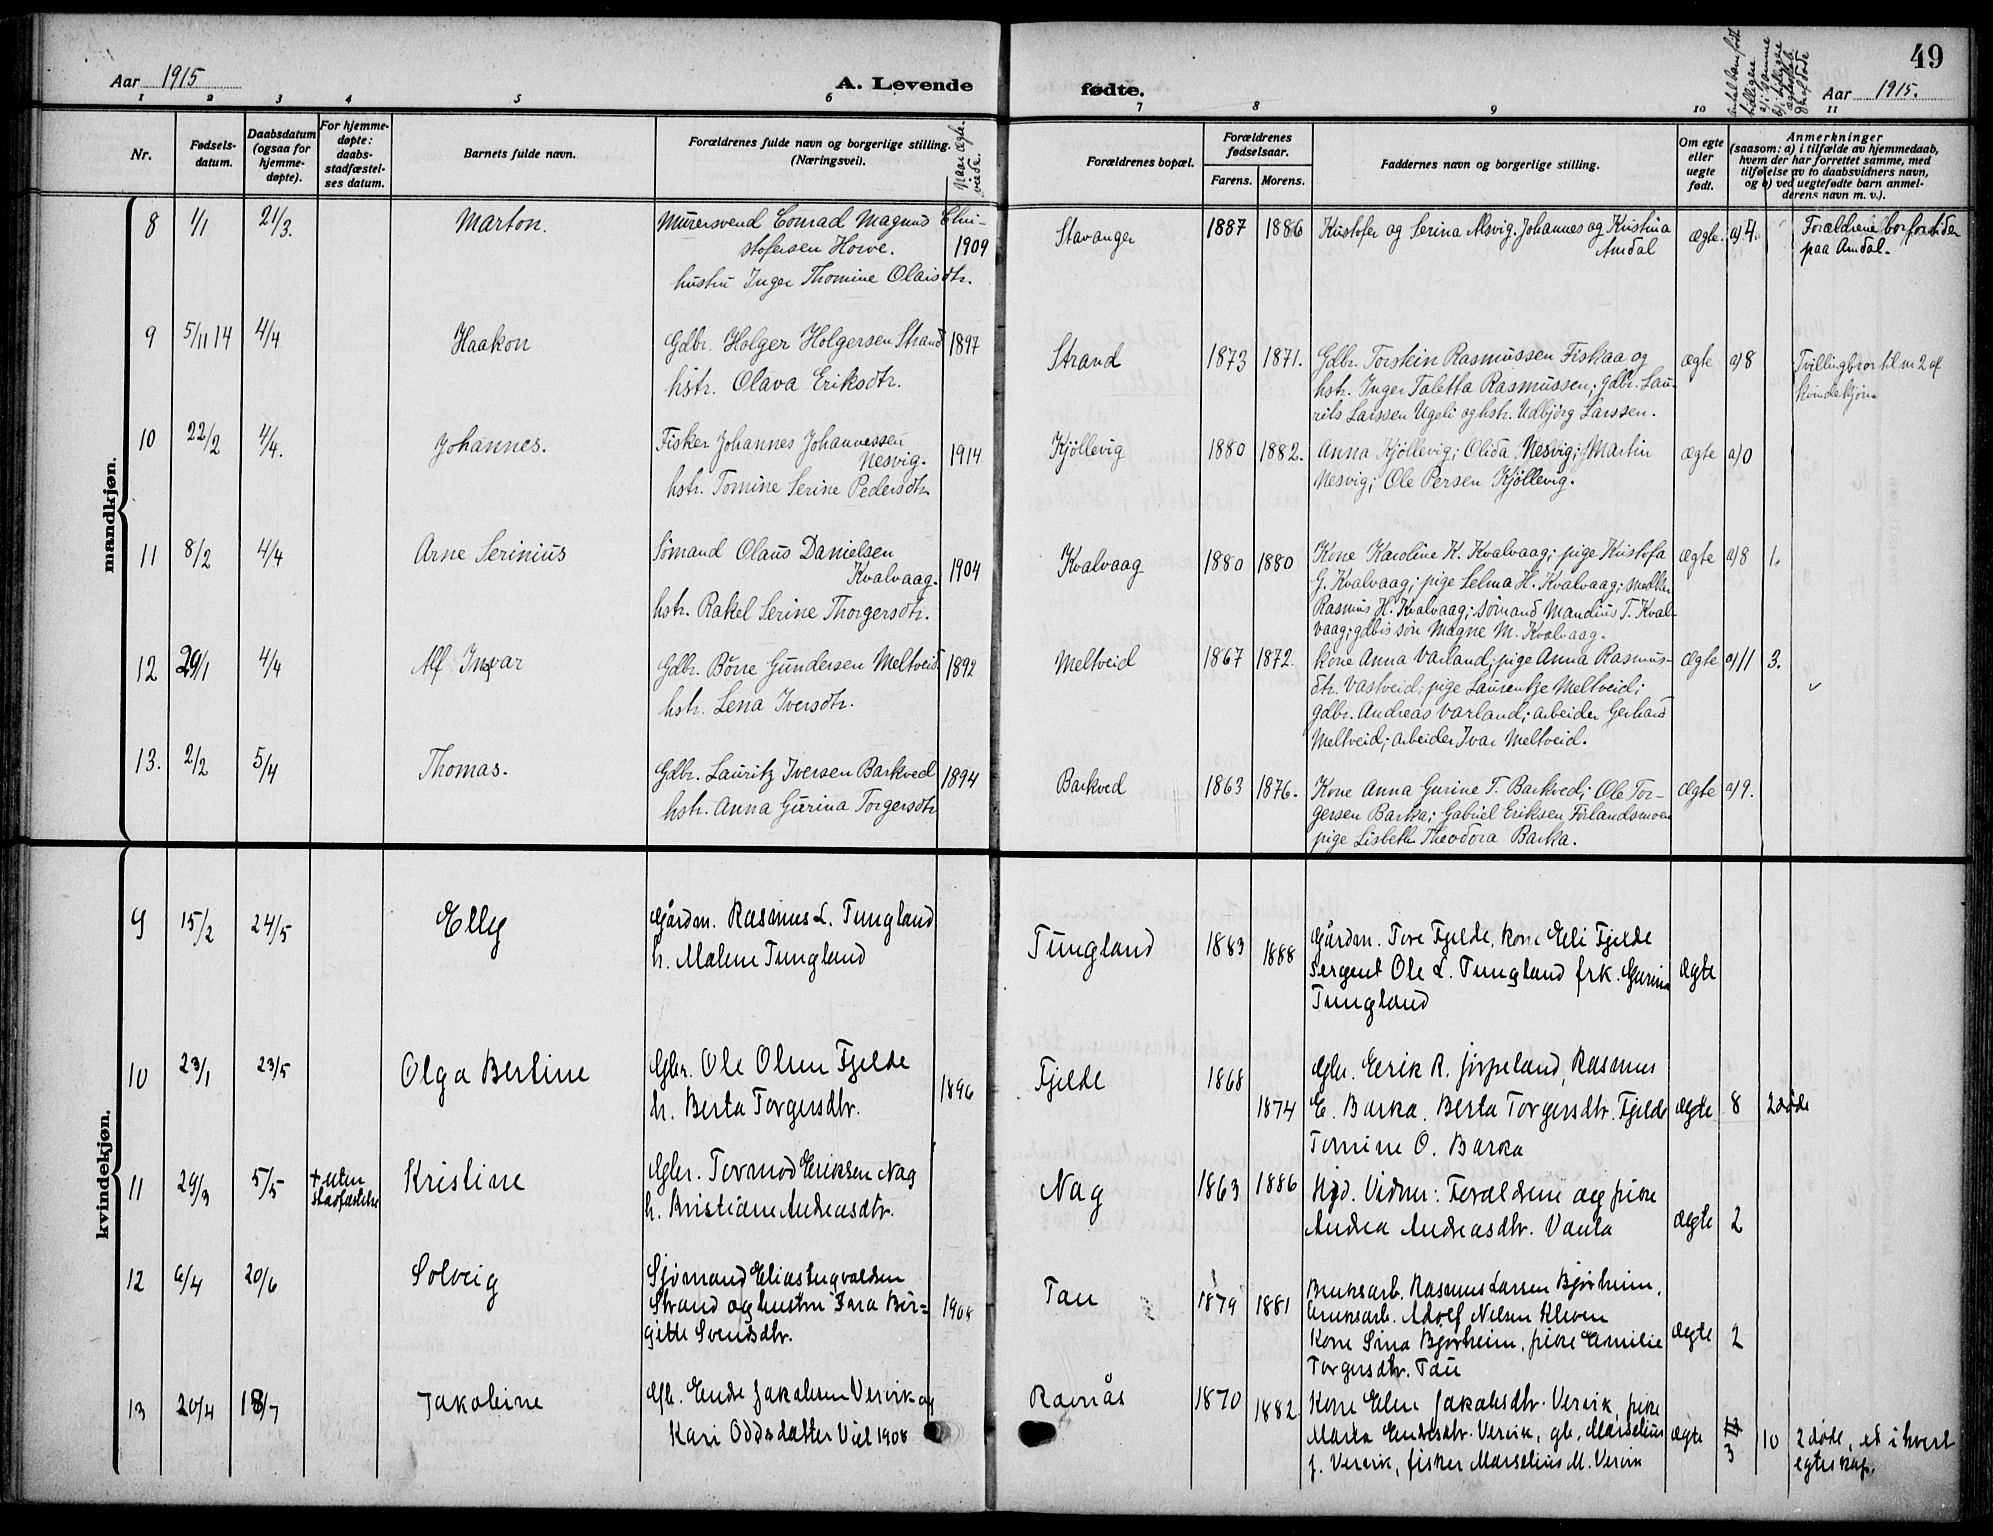 49
Aar 1915
A. Levende
fødte.
Aar 1915.
1 2 3 4 5 6 7 8 9 10 11
Nr.
Fødsels-
datum.
Daabsdatum
(ogsaa for
hjemme-
døpte).
For hjemme-
døpte:
daabs-
stadfæstel-
ses datum.
Barnets fulde navn.
Forældrenes fulde navn og borgerlige stilling.
(Næringsvei).
Naar ægte-
viede.
Forældrenes bopæl.
Forældrenes
fødselsaar.
Farens. Morens.
Faddernes navn og borgerlige stilling.
Om egte
eller
uegte
født.
Anmerkninger
(saasom: a) i tilfælde av hjemmedaab,
hvem der har forrettet samme, med
tilføielse av to daabsvidners navn,
og b) ved uegtefødte barn anmel-
derens navn m. v.).
mandkjøn.
8 1/1 21/3. Marton.
Murersvend Conrad Magnus Chri-
stofersen Howe. 1909
hustru Inger Thomine Olaisdtr.
Stavanger 1887 1886
Kristofer og Serina Alsvig. Johannes og Kristina
Amdal
ægte. a) 4.
Forældrene bor for tiden
paa Amdal.
9 5/11 14 4/4 Haakon
Gdbr. Holger Holgersen Strand 1897
hstr. Olava Eriksdtr.
Strand 1873 1871.
Gdbr. Torstein Rasmussen Fiskaa og
hstr. Inger Taletta Rasmussen; gdbr. Lau-
rits Larssen Ugeli og hstr. Udbjörg Larssen.
ægte a) 8
Tvillingbror til nr 2 af
kvindekjøn
10 22/2 4/4. Johannes.
Fisker Johannes Johannessen
Nesvig. 1914
hstr. Tomine Serine Pedersdtr.
Kjöllevig 1880 1882.
Anna Kjöllevig; Olida Nesvig; Martin
Nesvig; Ole Persen Kjöllevig.
ægte a) 0
11 8/2 4/4 Arne Serinius
Sömand Olaus Danielsen
Kvalvaag. 1904
hstr. Rakel Serine Thorgersdtr.
Kvalvaag 1880 1880
Kone Karoline K. Kvalvaag; pige Kristofa
G. Kvalvaag; pige Selma H. Kvalvaag;
Rasmus H. Kvalvaag; sömand Mandius T. Kval-
vaag; gdbrs sön Magne M. Kvalvaag.
ægte a) 8 1.
12 29/1 4/4 Alf Ingvar
Gdbr. Börre Gundersen Meltveid 1892
hstr. Lena Iversdtr.
Meltveid 1867 1872.
Kone Anna Varland; pige Anna Rasmus-
dtr. Vastveid; pige Laurentze Meltveid;
gdbr. Andreas Varland; arbeider Gerhard
Meltveid; arbeider Ivar Meltveid.
ægte a) 11 3.
13. 2/2 5/4 Thomas.
Gdbr. Lauritz Iversen Barkved 1894
hstr. Anna Gurina Torgersdtr.
Barkved 1863 1876.
Kone Anna Gurine T. Barkved; Ole Tor-
gersen Barka; Gabriel Eriksen Förlandsmoen
pige Lisbeth Theodora Barka.
ægte a) 9.
kvindekjøn.
9 15/2 24/5 Elly
Gårdm. Rasmus L. Tungland
h. Malene Tungland
Tungland 1883 1888
Gårdm. Tore Fjelde, kone Eli Fjelde
Sergent Ole L. Tungland frk. Gurina
Tungland
Ægte
10 23/1 23/5 Olga Bertine
Gbr. Ole Olsen Fjelde
h. Berta Torgersdtr. 1896
Fjelde 1868 1874
Gbr. Eerik R. Jørpeland, Rasmus
E. Barka. Berta Torgersdtr. Fjelde
Tomine O. Barka
Ægte 8 2 døde
11 29/3 5/5 + uten
stadfæstelse
Kristine
Gbr. Tormod Eriksen Nag
h. Kristiane Andreasdtr.
Nag 1863 1886
Hjd. Vidner: Foreldrene og pike
Andrea Andreasdtr. Vaula
Ægte 2
12 6/4 20/6 Solveig
Sjømand Elias Ingvaldsen
Strand og hustru Sara Bir=
gitte Svendsdtr. 1908
Tau 1879 1881
Bruksarb. Rasmus Larsen Bjørheim,
Bruksarb. Adolf Nielsen Kleven
Kone Sina Bjørheim, pike Emilie
Torgersdtr. Tau
Ægte 2
13 20/4 18/7 Jakobine
Gb. Endre Jakobsen Vervik og
Kari Oddsdatter Viet 1908
Ravnås 1870 1882
Kone Elen Jakobsdtr. Vervik, pike
Marta Endresdtr. Vervik, gb. Marselius
J. Vervik, fisker Marselius M. Vervik
Ægte 3 10
2 døde, et i hvert
egteskap.